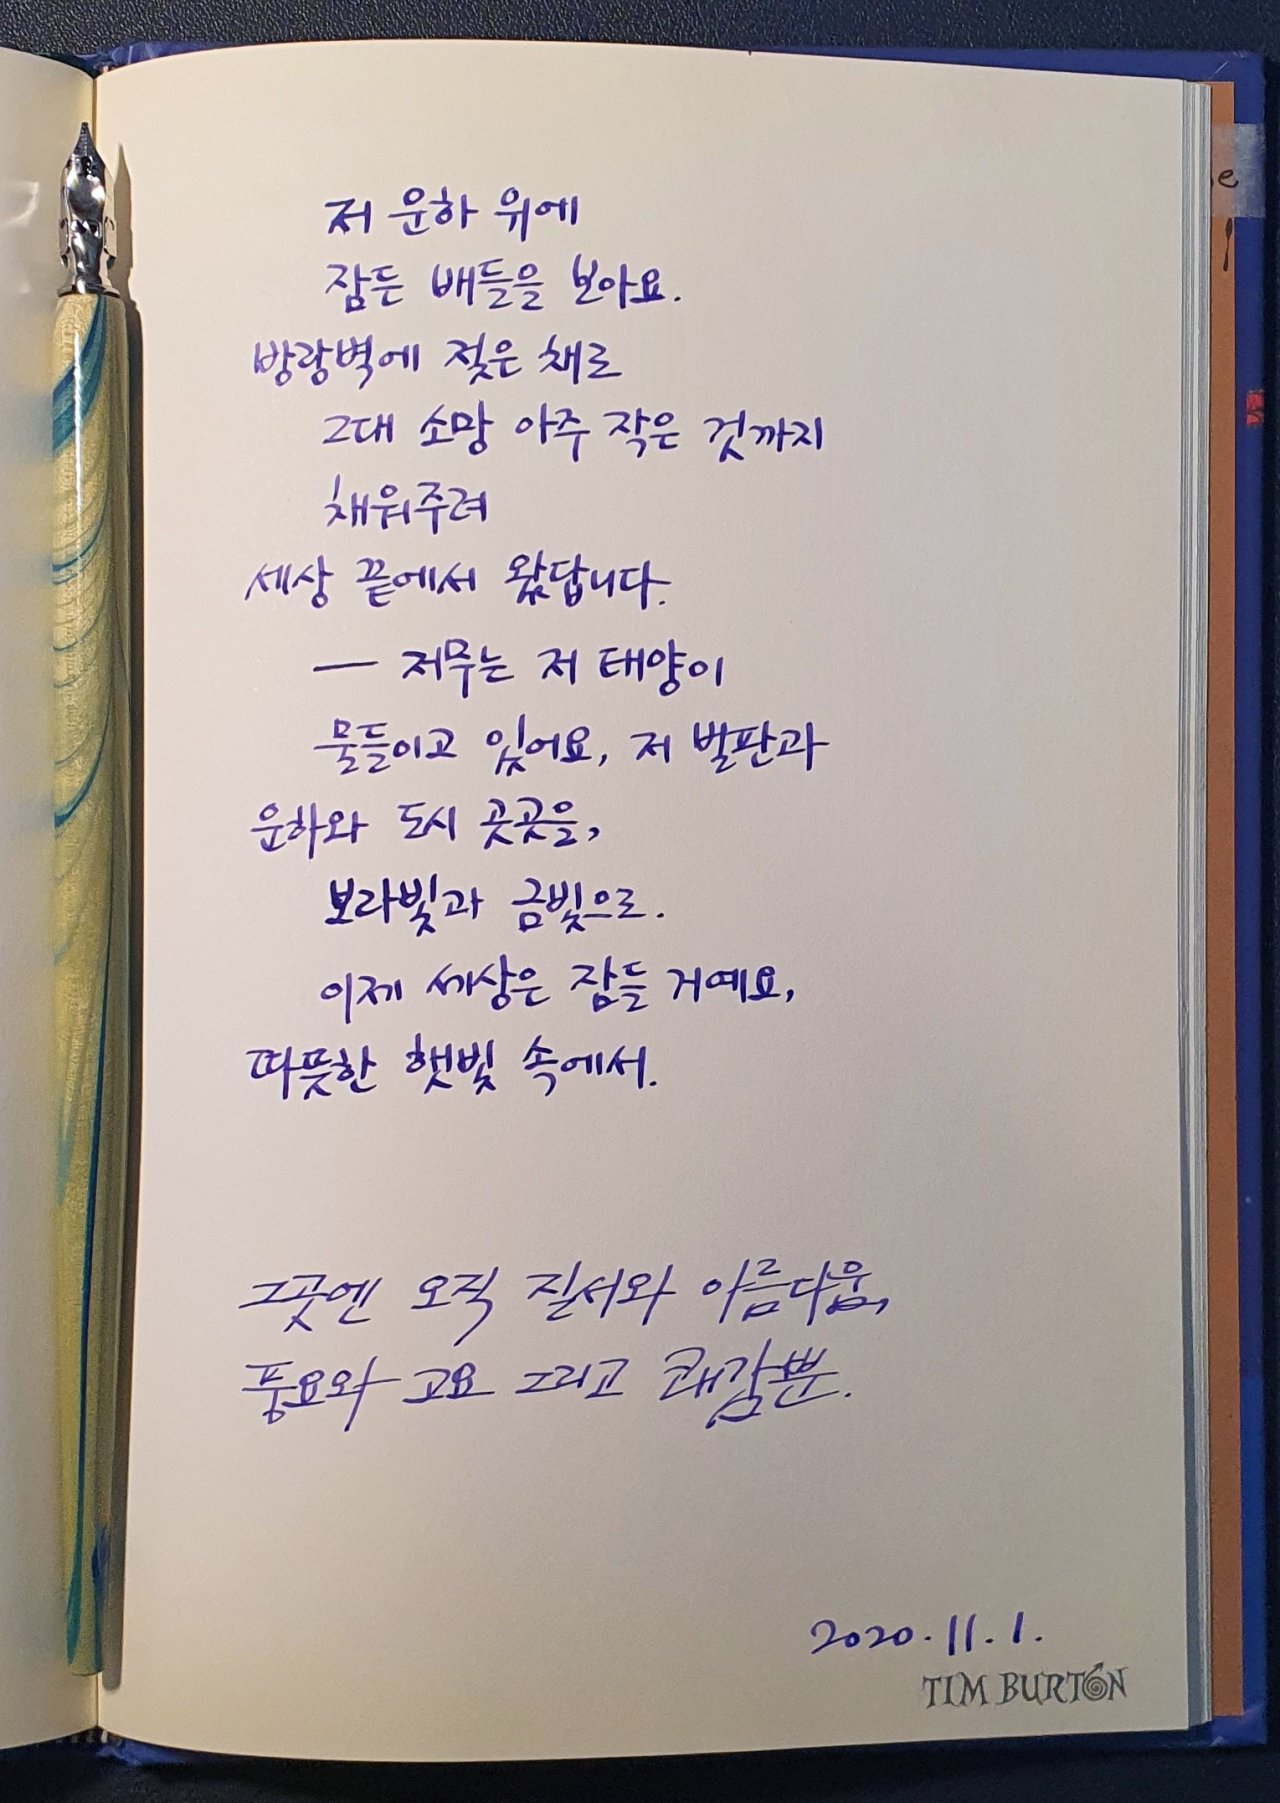 저 운하 위에
잠든 배들을 보아요.
방랑벽에 젖은 채로
그대 소망 아주 작은 것까지
채워주려
세상 끝에서 왔답니다.
— 저무는 저 태양이
물들이고 있어요, 저 벌판과
운하와 도시 곳곳을,
보라빛과 금빛으로.
이제 세상은 잠들 거예요,
따뜻한 햇빛 속에서.
그곳엔 오직 질서와 아름다움,
풍요와 고요 그리고 쾌감뿐.
2020. 11. 1.
TIM BURTON